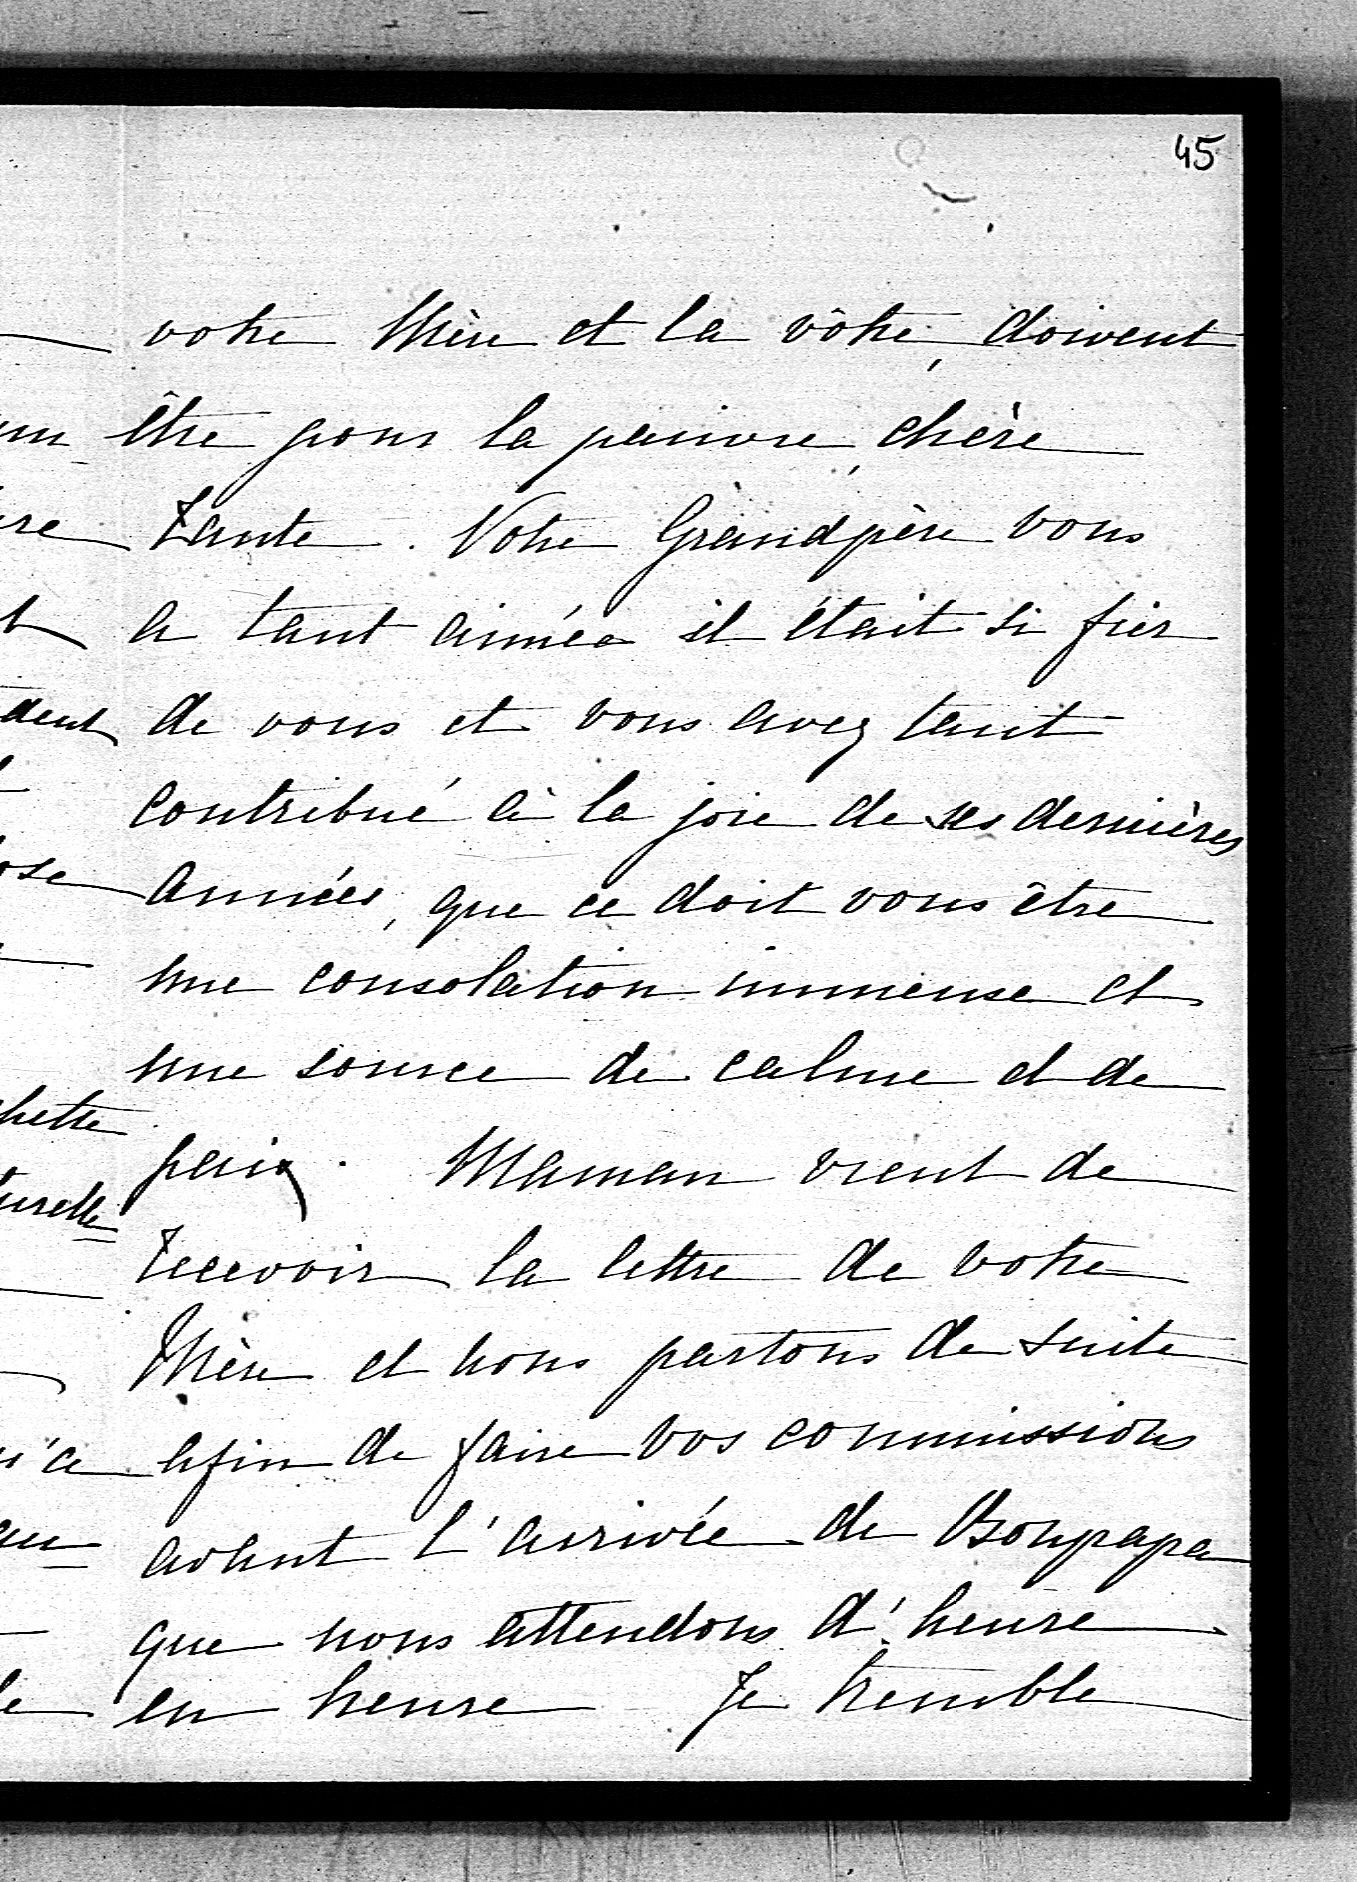 45
votre Mère et la vôtre, doivent
être pour la pauvre, chère
Tante. Votre Grandpère vous
a tant aimée il était si fier
de vous et vous avez tant
contribué à la joie de ses dernières
années, que ce doit vous être
une consolation immense et
une source de calme et de
paix. Maman vient de
recevoir la lettre de votre
Mère et nous partons de suite
afin de faire vos commissions
avant l'arrivée de Bonpapa
que nous attendons d'heure
en heure Je tremble